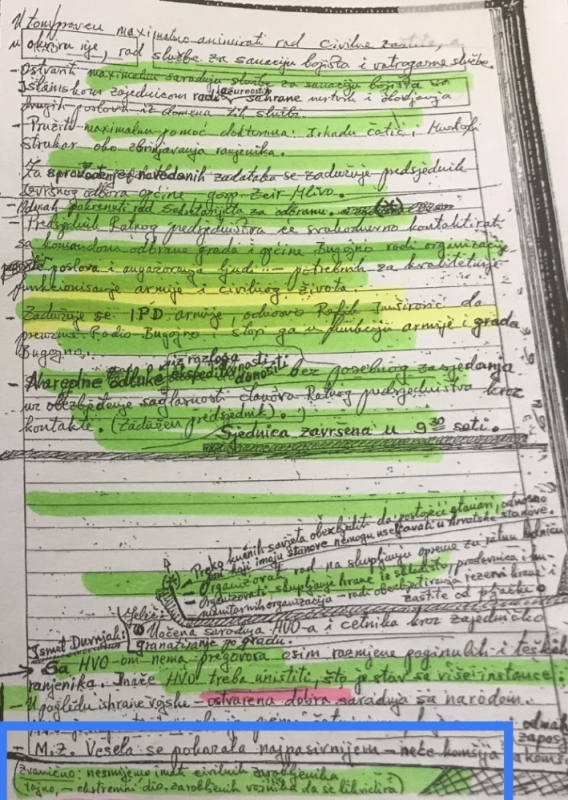 U tom pravcu maximalno animirati rad civilne zaštite, a
u okviru nje, rad službe za sanaciju bojišta i vatrogasne službe.
- Ostvariti maximalnu saradnju službe za sanaciju bojišta sa
Islamskom zajednicom radi ažurnosti sahrane mrtvih i
drugih poslova iz domena službi.
- Pružiti maximalnu pomoć doktorima: Irhadu, Mustafi
oko zbrinjavanja ranjenika.
Za sprovođenje navedenih zadataka se zadužuje predsjednik
Izvršnog odbora općine gosp. Zeir Mlivo.
- Odmah pokrenuti rad za odbranu.
Predsjednik Ratnog predsjedništva će svakodnevno kontaktirati
sa komandom odbrane grada i općine Bugojno radi organizacije
poslova i angažovanja ljudi - potrebnih za kvalitetnije
funkcionisanje armije i civilnog života.
- Zadužuje se IPD armije, odnosno Rafik da
preuzme Radio-Bugojno i stavi ga u funkciju armije i grada
Bugojno.
iz razloga
- Naredne odluke ekspeditivnosti donositi bez posebnog zasjedanja
uz obezbjeđenje saglasnosti članova Ratnog predsjedništva kroz
kontakte. (Zadužen predsjednik).
Sjednica završena u 9 30 sati.
Preko kućnih savjeta obezbijediti da postojeći stanari, odnosno
oni koji imaju stanove nemogu useljavati u hrvatske stanove.
- Organizovati rad na skupljanju opreme za ratnu bolnicu
- Organizovati skupljanje hrane iz skladišta, prodavnica i hu-
manitarnih organizacija - radi obezbjeđivanja rezervi hrane i
zaštite od pljačke
Ismet Durnjak:
Uočena saradnja HVO-a i četnika kroz zajedničko
granatiranje po gradu.
→ Sa HVO-om nema pregovora osim razmjene poginulih i teških
ranjenika. Inače HVO treba uništiti, što je stav sa više instance.
- U pogledu ishrane vojske - ostvarena dobra saradnja sa narodom.
- M.Z. Vesela se pokazala najpasivnijem - neće komšija
Zvanično: nesmijemo imati civilnih zarobljenika
tajno, - ekstremni dio zarobljenih vojnika da se likvidira)